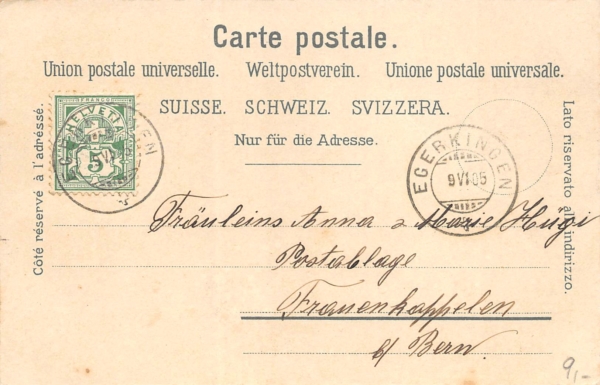 Carte postale.
Union postale universelle. Weltpostverein. Unione postale universale.
SUISSE. SCHWEIZ. SVIZZERA.
Nur für die Adresse.
Côté réservé à l'adresse.
Lato riservato all'indirizzo.
FRANCO
HELVETIA
5
EGERKINGEN
9 VI 05
Fräuleins Anna & Marie Hügi
Postablage
Frauenkappelen
b/ Bern.
9,-